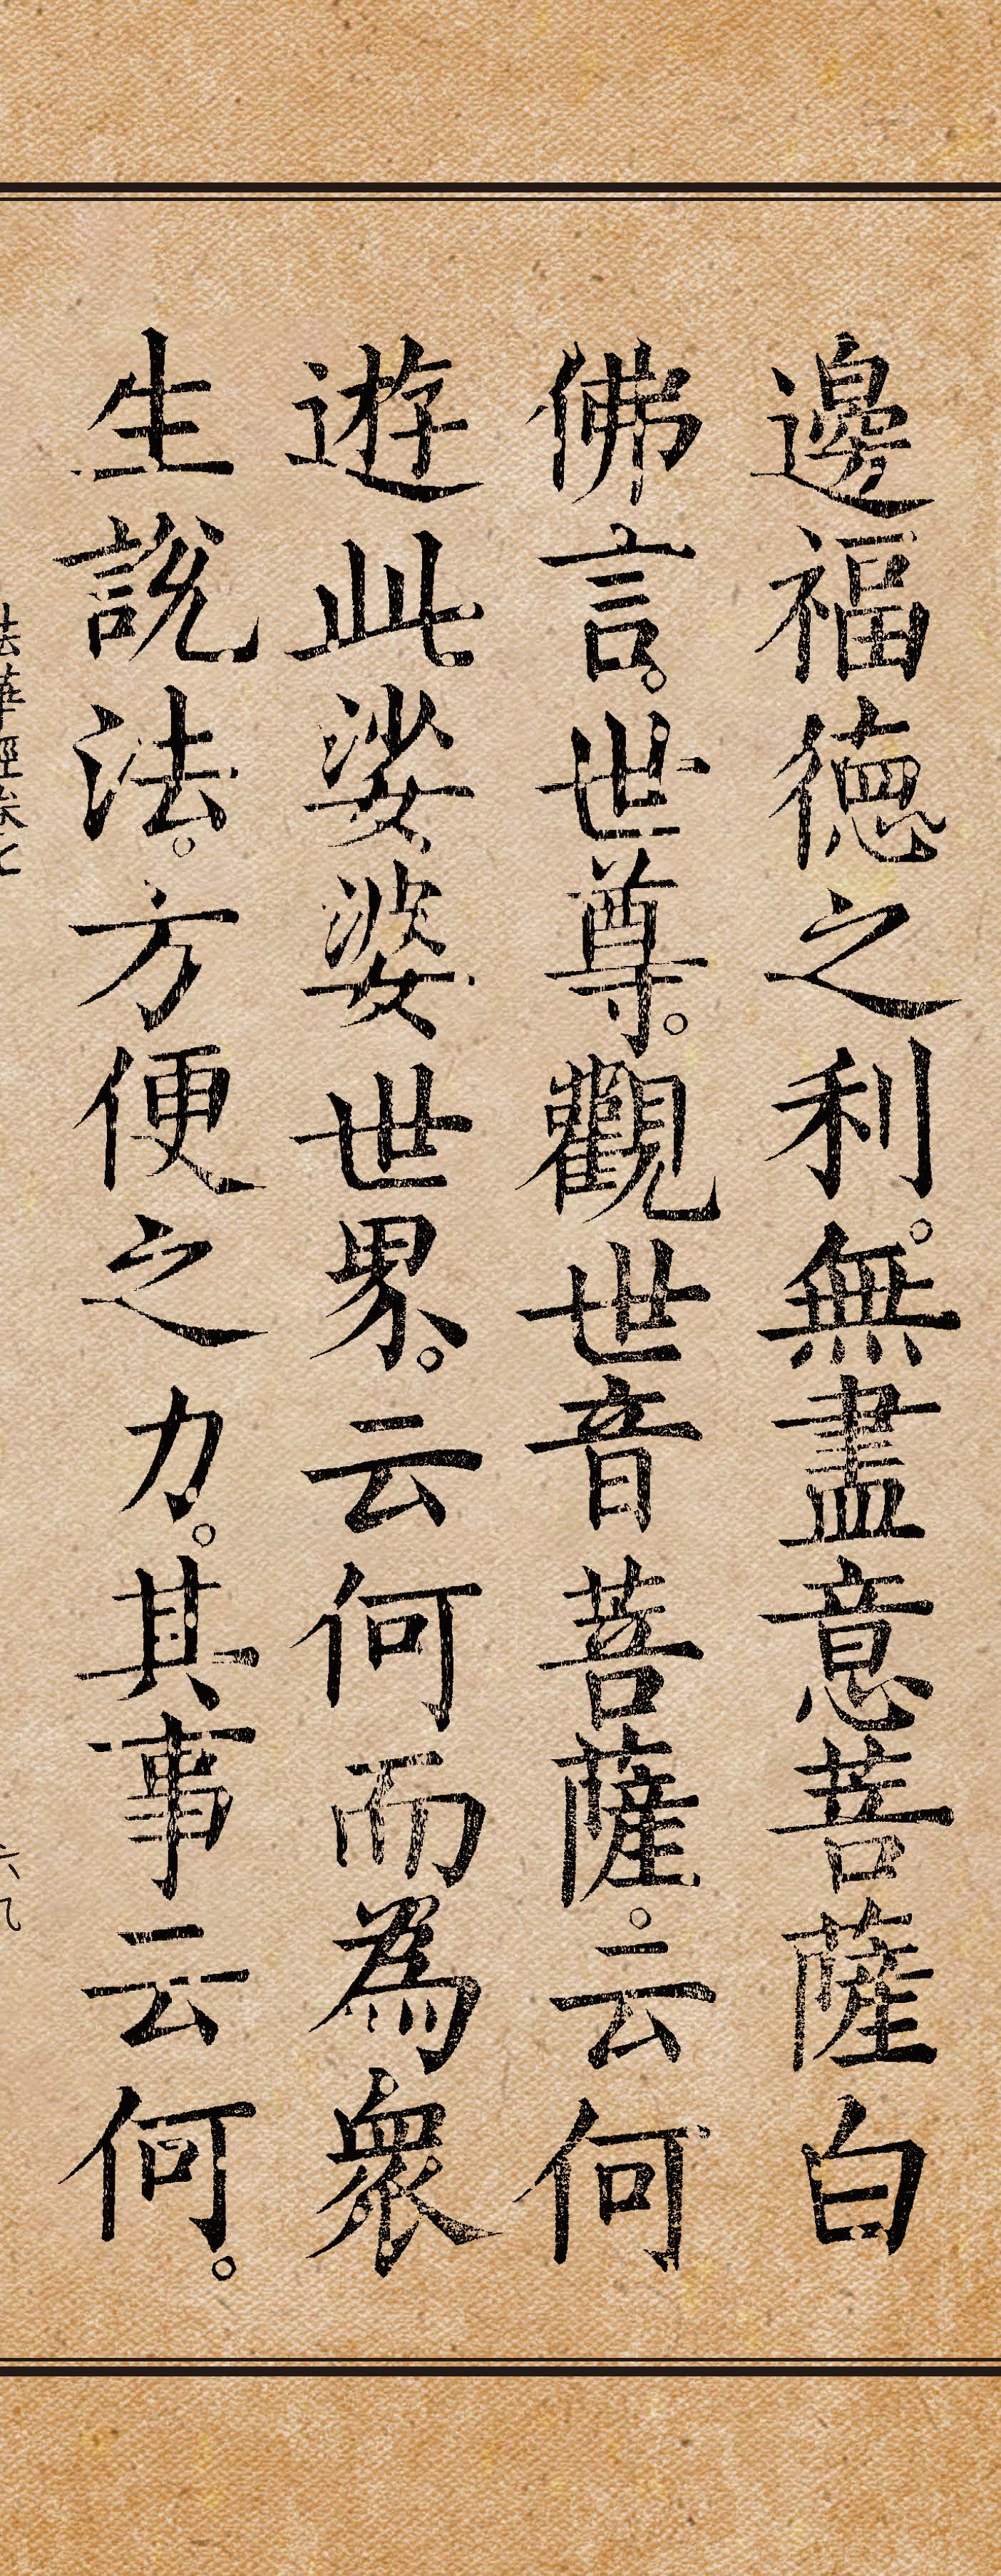 邊福德之利。無盡意菩薩白
佛言。世尊。觀世音菩薩。云何
遊此娑婆世界。云何而為衆
生說法。方便之力。其事云何。
法華經卷七